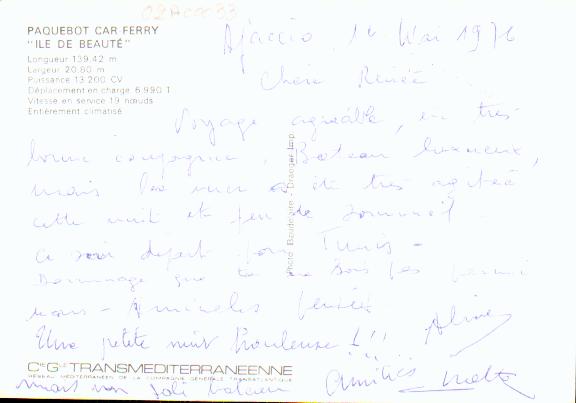 02A0033
PAQUEBOT CAR FERRY
"ILE DE BEAUTÉ"
Longueur 139,42 m
Largeur 20,80 m
Puissance 13 200 CV
Déplacement en charge 6.990 T
Vitesse en service 19 nœuds
Entièrement climatisé
Ajaccio, Mai 1976
Chère Renée
Voyage agréable, en très
bonne compagnie. Bateau luxueux,
mais la mer a été très agitée
cette nuit et peu de sommeil
ce soir départ pour Tunis -
Dommage que tu ne sois pas parmi
nous - Amicales pensées
Aline
Une petite nuit houleuse !!!
mais un joli bateau
Amitiés
Photo Baudelaire - Draeger Imp.
Cie Gle TRANSMEDITERRANEENNE
RÉSEAU MÉDITERRANÉEN DE LA COMPAGNIE GÉNÉRALE TRANSATLANTIQUE